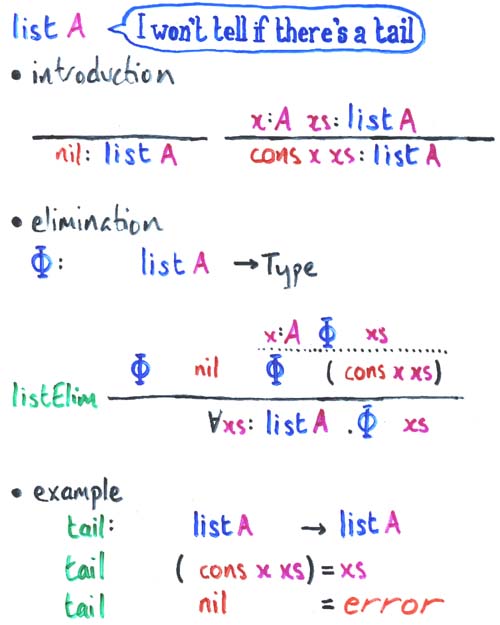 list A I won't tell if there's a tail
• introduction
x:A xs: list A
nil: list A cons x xs: list A
• elimination
Φ: list A → Type
x:A Φ xs
Φ nil Φ (cons x xs)
listElim
∀xs: list A . Φ xs
• example
tail: list A → list A
tail (cons x xs) = xs
tail nil = error